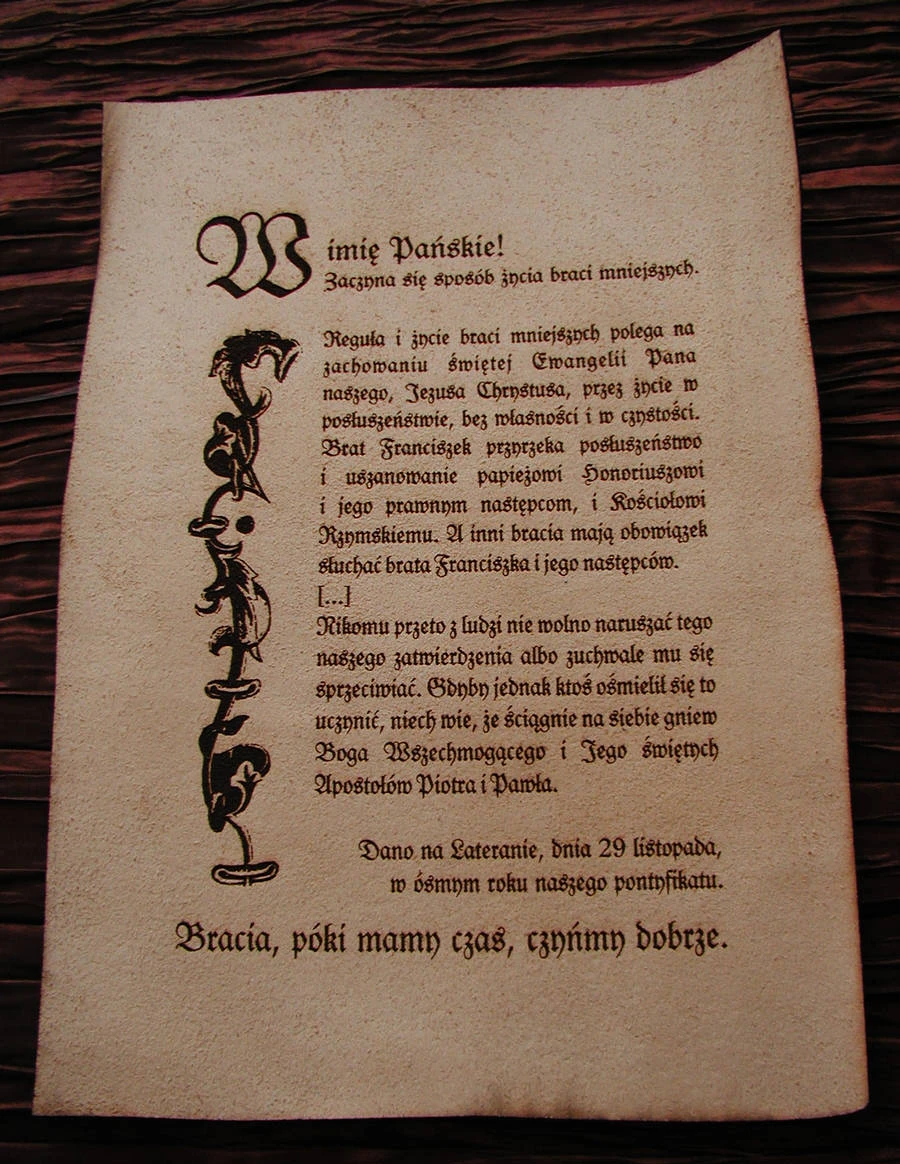 W imię Pańskie!
Zaczyna się sposób życia braci mniejszych.
Reguła i życie braci mniejszych polega na
zachowaniu świętej Ewangelii Pana
naszego, Jezusa Chrystusa, przez życie w
posłuszeństwie, bez własności i w czystości.
Brat Franciszek przyrzeka posłuszeństwo
i uszanowanie papieżowi Honoriuszowi
i jego prawnym następcom, i Kościołowi
Rzymskiemu. A inni bracia mają obowiązek
słuchać brata Franciszka i jego następców.
[...]
Nikomu przeto z ludzi nie wolno naruszać tego
naszego zatwierdzenia albo zuchwale mu się
sprzeciwiać. Gdyby jednak ktoś ośmielił się to
uczynić, niech wie, że ściągnie na siebie gniew
Boga Wszechmogącego i Jego świętych
Apostołów Piotra i Pawła.
Dano na Lateranie, dnia 29 listopada,
w ósmym roku naszego pontyfikatu.
Bracia, póki mamy czas, czyńmy dobrze.